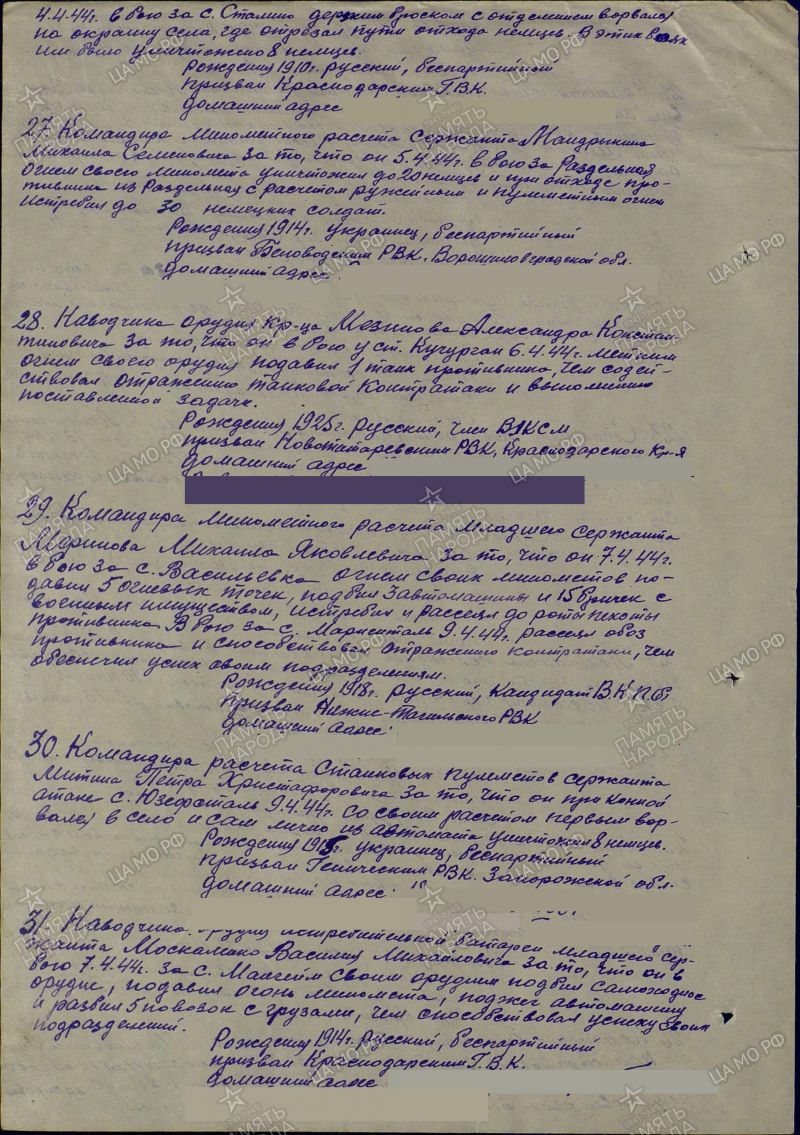 4.4.44г. в бою за с. Сталино дерзким броском с отделением ворвался
на окраину села, где отрезал пути отхода немцев. В этих боях
им было уничтожено 8 немцев.
Рождения 1910г. русский, беспартийный
призван Краснодарским Г.В.К.
домашний адрес
27. Командира минометного расчета Сержанта Мандрыкина
Михаила Семеновича за то, что он 5.4.44г. в бою за Раздельная
огнем своего миномета уничтожил до 20 немцев и при отходе про-
тивника из Раздельная с расчетом ружейным и пулеметным огнем
истребил до 30 немецких солдат.
Рождения 1914г. украинец, беспартийный
призван Беловодским РВК. Ворошиловградской обл.
домашний адрес
28. Наводчика орудия кр-ца Мезинова Александра Констан-
тиновича за то, что он в бою у ст. Кучурган 6.4.44г. метким
огнем своего орудия подавил 1 танк противника, чем содей-
ствовал отражению танковой контратаки и выполнению
поставленной задачи.
Рождения 1925г. русский, член ВЛКСМ
призван Новотитаревским РВК, Краснодарского кр-я
домашний адрес
29. Командира минометного расчета Младшего Сержанта
Меринова Михаила Яковлевича за то, что он 7.4.44г.
в бою за с. Васильевка огнем своих минометов по-
давил 5 огневых точек, подбил 3 автомашины и 15 бричек с
военным имуществом, истребил и рассеял до роты пехоты
противника. В бою за с. Мариенталь 9.4.44г. рассеял обоз
противника и способствовал отражению контратаки, чем
обеспечил успех своим подразделениям.
Рождения 1918г. русский, кандидат В.К.П.(б)
призван Нижне-Тагильского РВК
домашний адрес
30. Командира расчета Станковых пулеметов сержанта
Митина Петра Христофоровича за то, что он при конной
атаке с. Юзефсталь 9.4.44г. со своим расчетом первым вор-
вался в село и сам лично из автомата уничтожил 8 немцев.
Рождения 1915г. украинец, беспартийный
призван Геническим РВК. Запорожской обл.
домашний адрес
31. Наводчика орудия истребительной батареи младшего Сер-
жанта Москаленко Василия Михайловича за то, что он в
бою 7.4.44г. за с. Мангейм своим орудием подбил самоходное
орудие, подавил огонь миномета, поджег автомашину
и разбил 5 повозок с грузами, чем способствовал успеху своих
подразделений.
Рождения 1914г. русский, беспартийный
призван Краснодарским Г.В.К.
домашний адрес
ЦАМО РФ
ПАМЯТЬ
НАРОДА